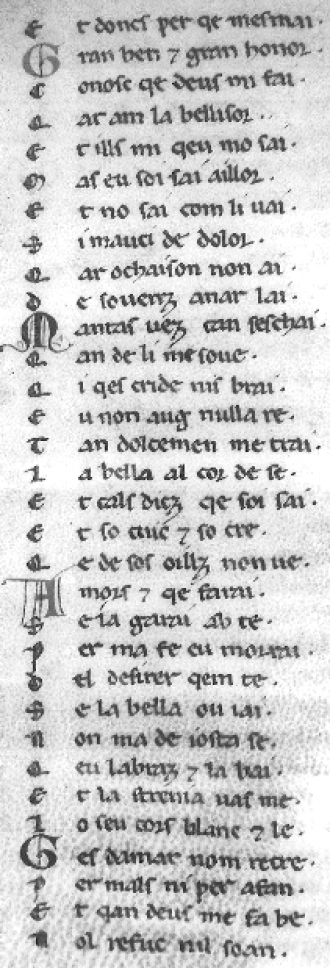 E t doncs per qe mesmai.
G ran ben ⁊ gran honor.
C onosc qe deus mi fai.
Q ar am la bellisor.
E t ills mi qeu mo sai.
M as eu soi sai aillor.
E t no sai com li uai.
S i mauci de dolor.
Q ar ochaison non ai.
D e souenz anar lai.
M antas uez can seschai.
Q an de li me soue.
Q i qes cride nis brai.
E u non aug nulla re.
T an dolcemen me trai.
L a bella al cor de se.
E t cals diçz qe soi sai.
E t so cuic ⁊ so cre.
Q e de sos oillz non ue.
A mors ⁊ qe farai.
S e ia grarai ab te.
P er ma fe eu morrai.
D el desirer qem te.
S e la bella ou iai.
N on ma de iosta se.
Q eu labraz ⁊ la bai.
E t la strenia uas me.
L o seu cors blanc ⁊ le.
G es damar nom recre.
P er mals ni per afan.
E t qan deus me fa be.
N ol refuc nil soan.